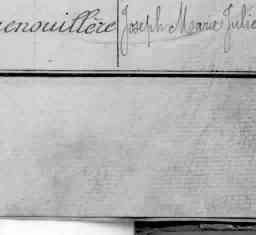 enouillère Joseph Marie Julie